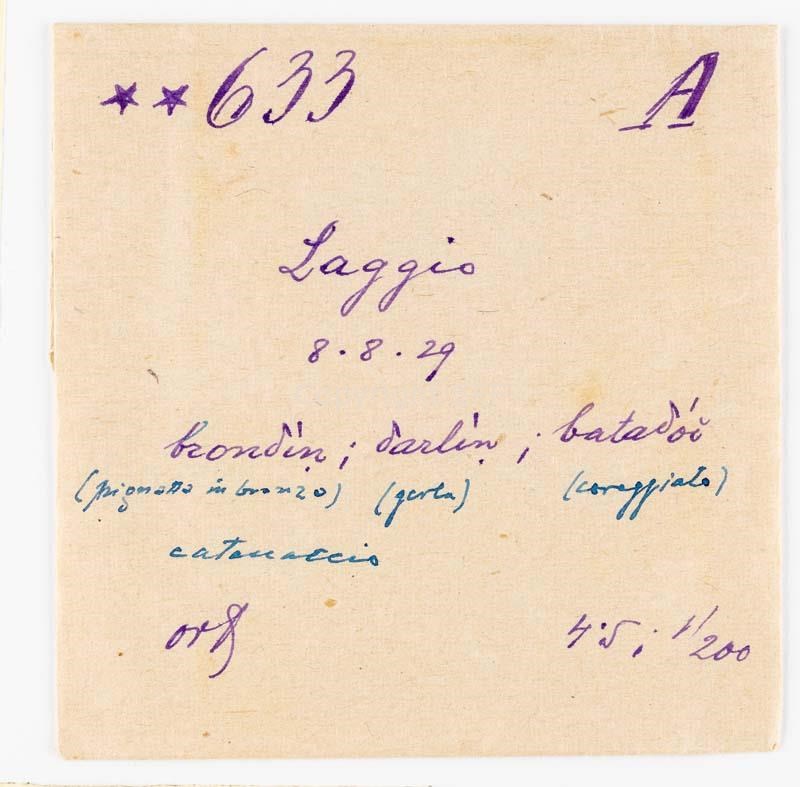 ★★633 A
Laggio
8.8.29
bronđíṇ; đarlíṇ; batađóč
(pignatta in bronzo) (gerla) (coreggiato)
catenaccio
4·5; 1/200